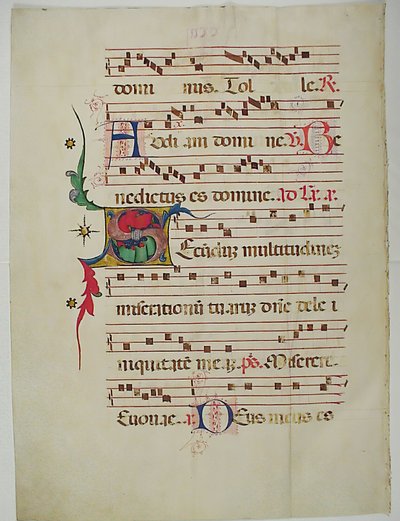 domi nus. Tol le. R.
Audi am domi ne. V. Be
nedictus es domine. ad
Secundum multitudinem
miserationum tuarum dne dele i
niquitatem me ps. Miserere.
Euouae. Deus meus es